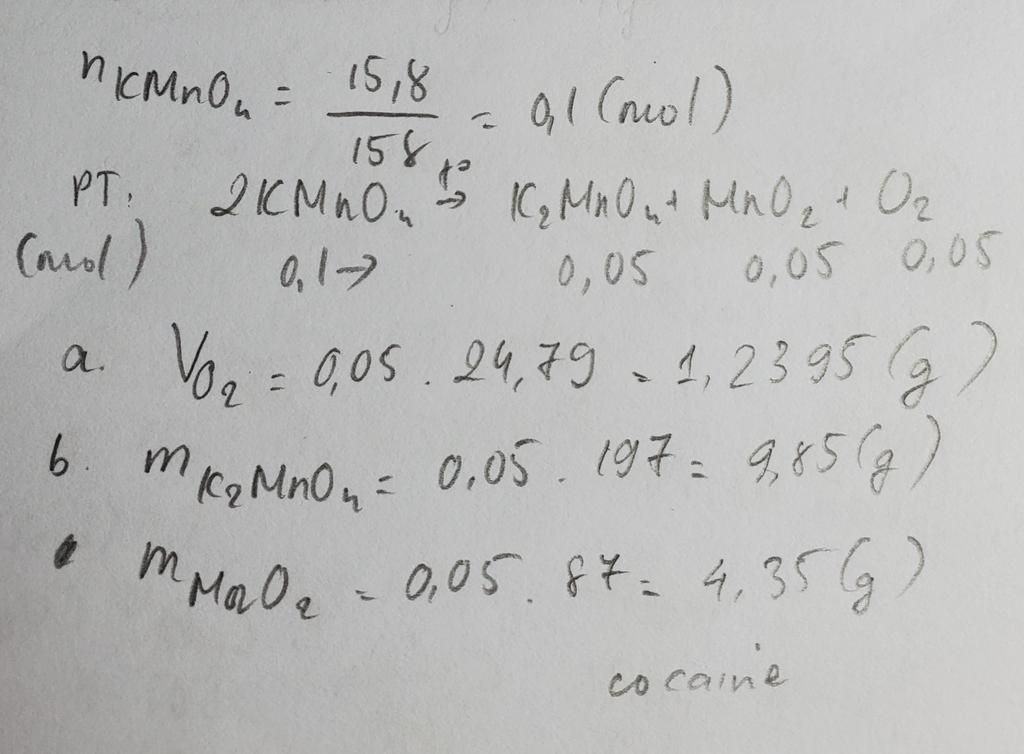 nKMnO₄ = 15,8 / 158 = 0,1 (mol)
PT: 2KMnO₄ t° → K₂MnO₄ + MnO₂ + O₂
(mol) 0,1 → 0,05 0,05 0,05
a. VO₂ = 0,05 . 24,79 = 1,2395 (g)
b. mK₂MnO₄ = 0,05 . 197 = 9,85 (g)
mMnO₂ = 0,05 . 87 = 4,35 (g)
cocaine